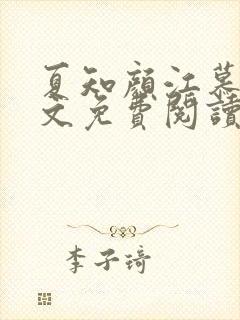 夏知顏江慕
文免費閱讀
李子琦